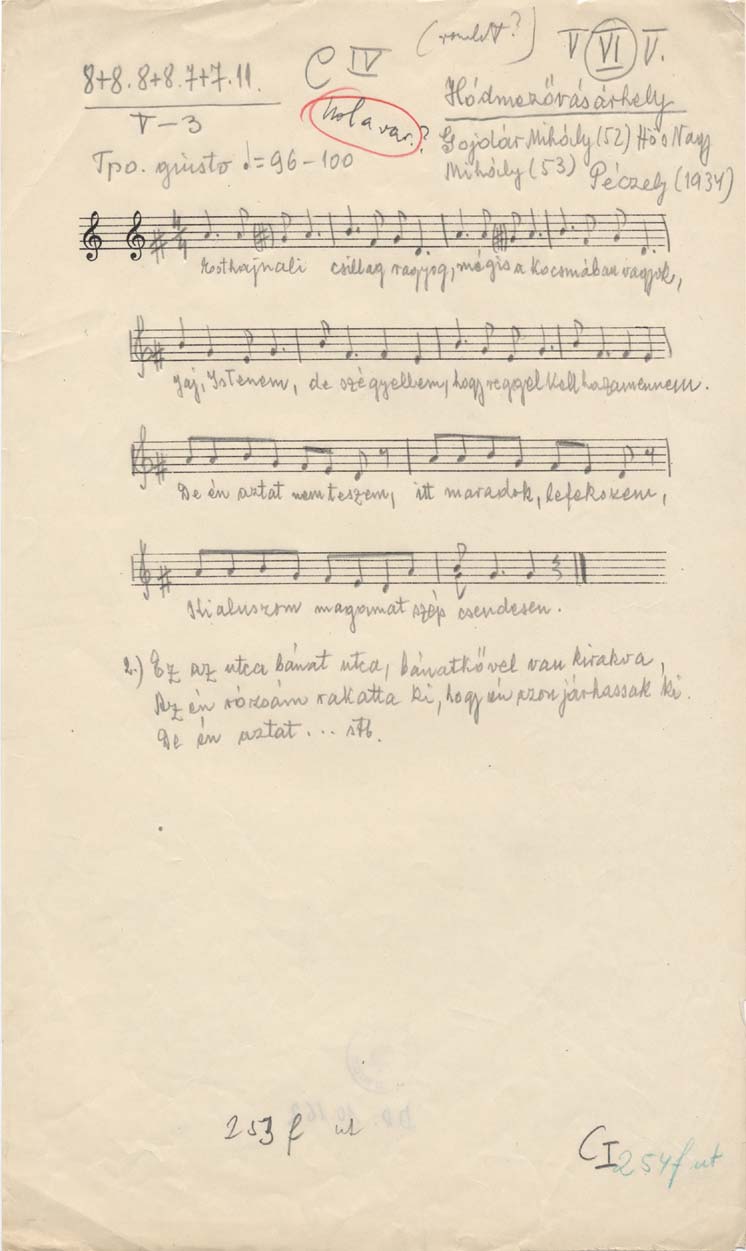 8+8. 8+8. 7+7. 11.
V–3
Tpo. giusto ♩=96–100
C IV
hol a var.?
V VI V.
Hódmezővásárhely
Gojdár Mihály (52) Hős Nagy
Mihály (53) Péczely (1934)
4/4
Esthajnali csillag ragyog, mégis a kocsmában vagyok,
Jaj, Istenem, de szégyellem, hogy reggel kell hazamennem.
De én aztat nem teszem, itt maradok, lefekszem,
Kialuszom magamat szép csendesen.
2.) Ez az utca bánat utca, bánatkővel van kirakva,
Az én rózsám rakatta ki, hogy én azon járhassak ki.
De én aztat... stb.
253 f ut
C I 254 f ut